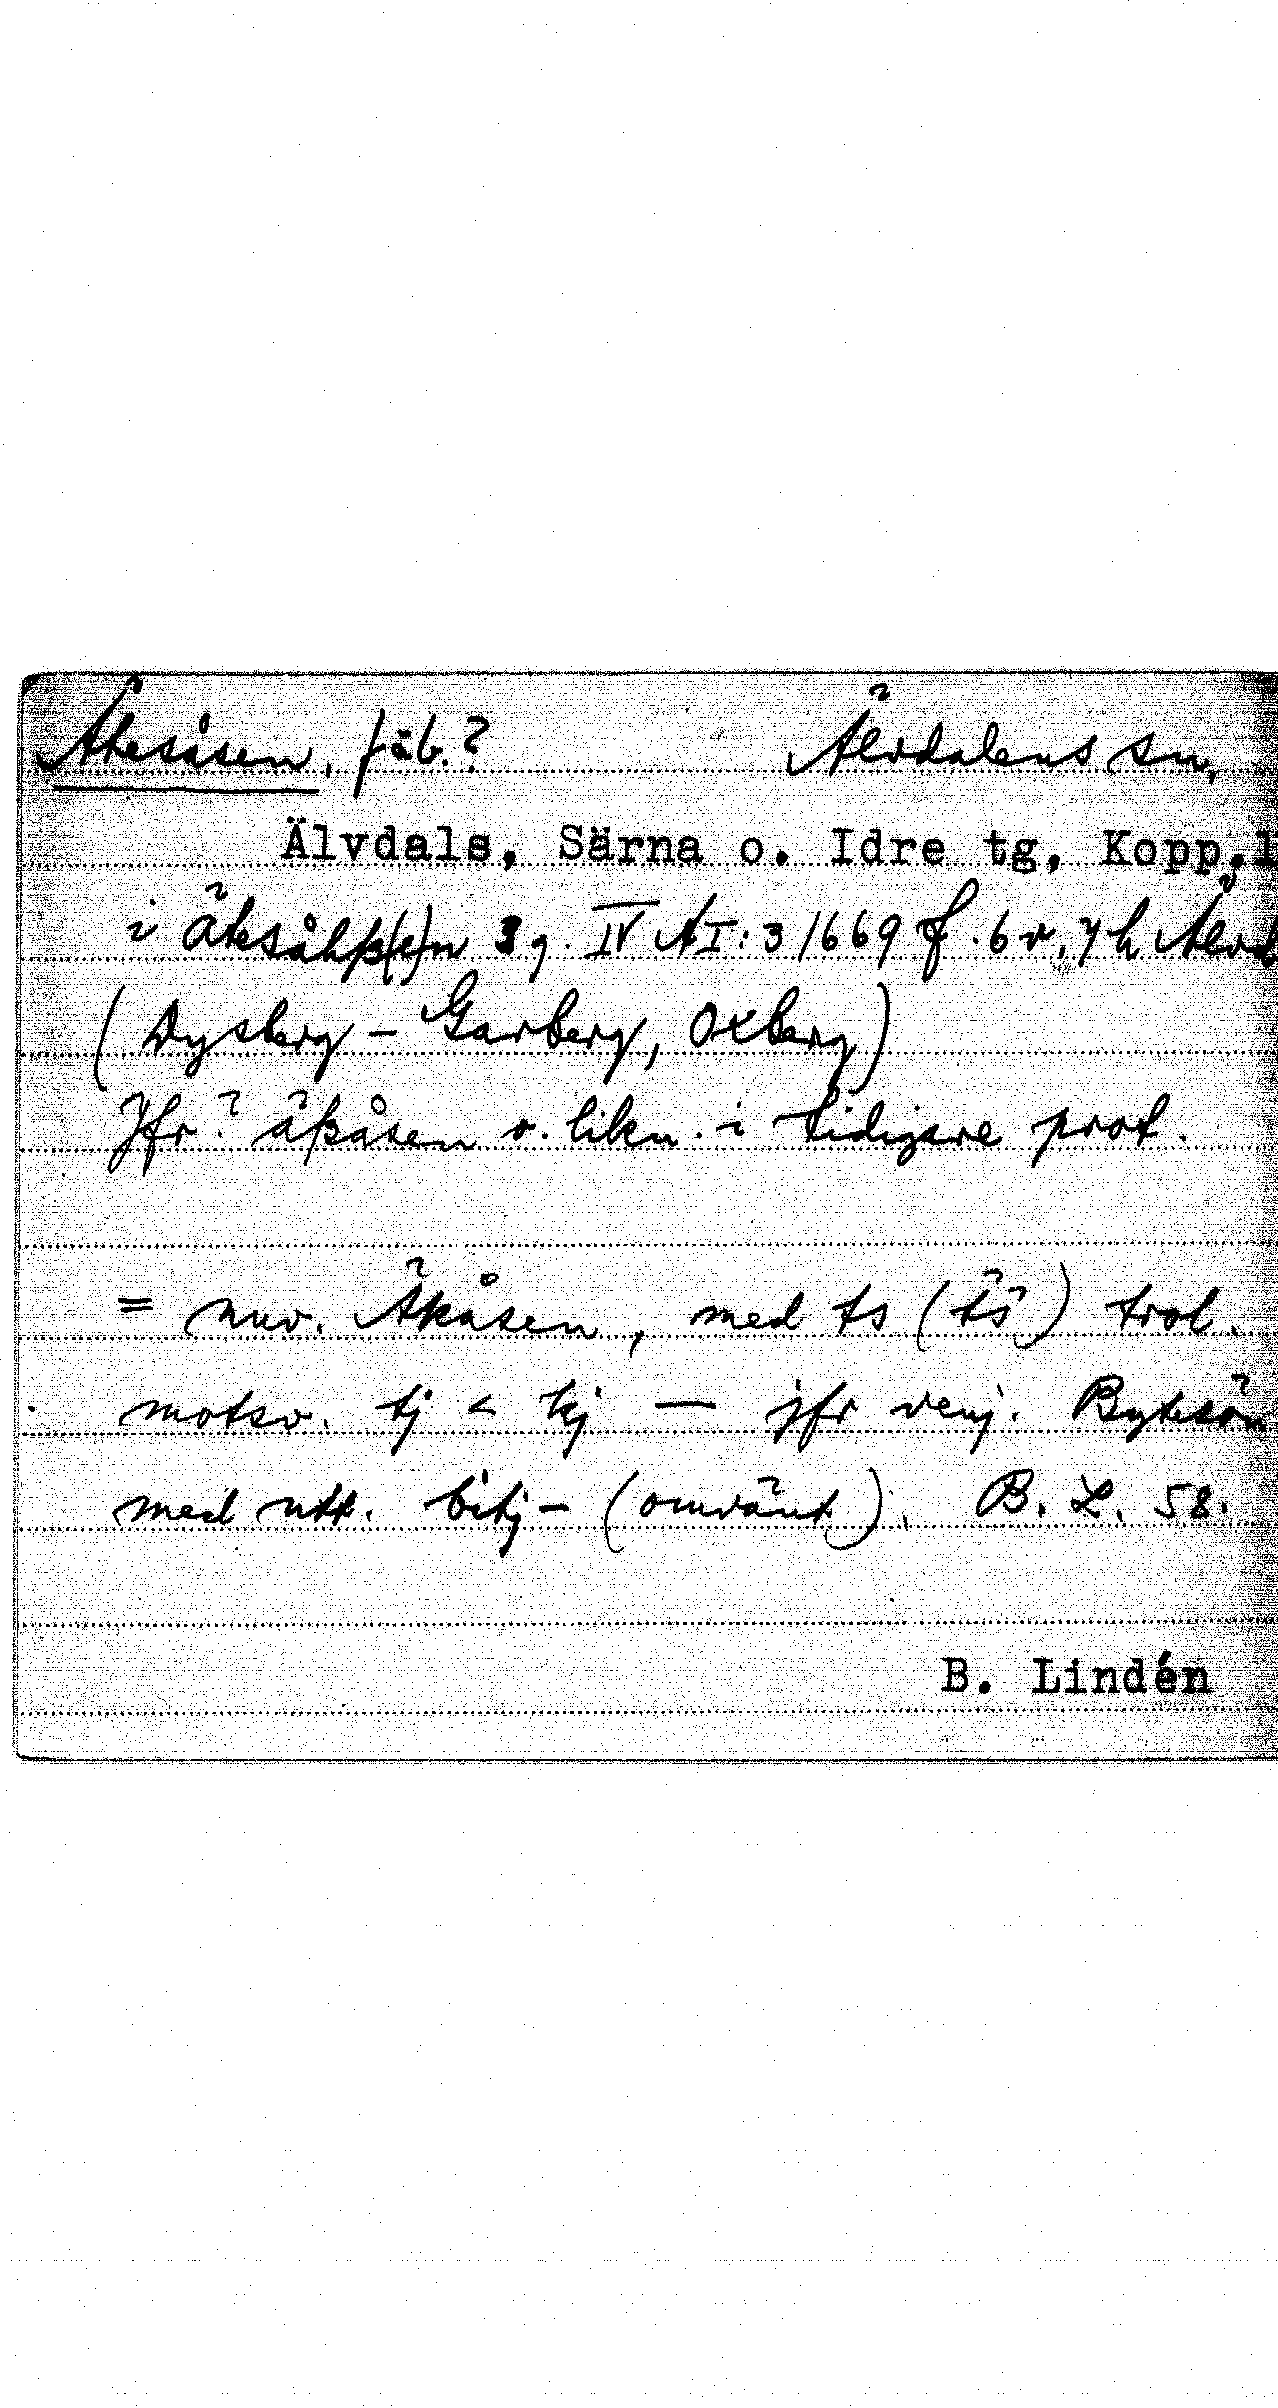 Äkesåsen, fäb.? Älvdalens sn,
Älvdals, Särna o. Idre tg, Kopp.l
i 3 g. IV AI:3 1669 f. 6 v, 7 h Älvd
(Dysberg – Garberg, Oxberg)
Jfr? äkåsen o. likn. i tidigare prot.
= nuv. Äkåsen, med ts (tš) trol.
motsv. tj < kj — jfr venj.
med utt. bitj– (omvänt). B. L. 58.
B. Lindén